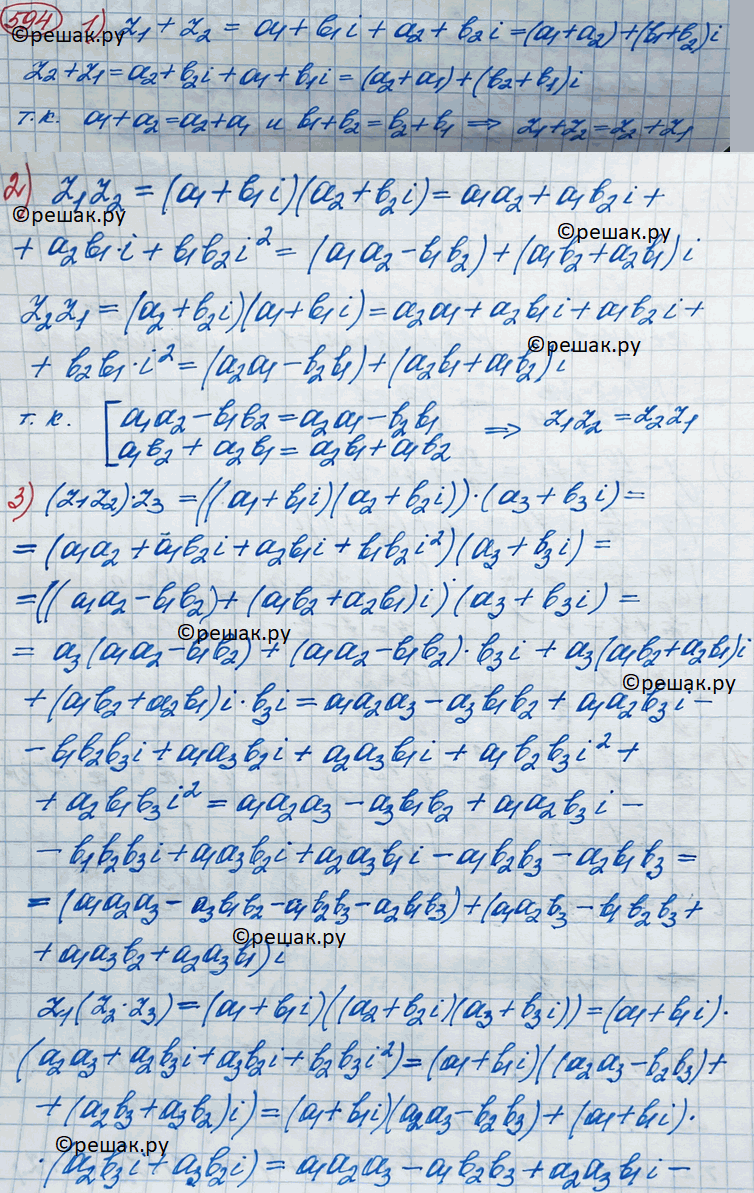 594 1) z₁ + z₂ = a₁ + b₁i + a₂ + b₂i = (a₁+a₂) + (b₁+b₂)i
©решак.ру
z₂+z₁ = a₂+b₂i + a₁ + b₁i = (a₂+a₁) + (b₂+b₁)i
т.к. a₁+a₂=a₂+a₁ и b₁+b₂=b₂+b₁ ⇒ z₁+z₂=z₂+z₁
2) z₁z₂ = (a₁+b₁i)(a₂+b₂i) = a₁a₂ + a₁b₂i +
©решак.ру
©решак.ру
+ a₂b₁·i + b₁b₂i² = (a₁a₂ - b₁b₂) + (a₁b₂+a₂b₁)i
z₂z₁ = (a₂+b₂i)(a₁+b₁i) = a₂a₁ + a₂b₁i + a₁b₂i +
©решак.ру
+ b₂b₁·i² = (a₂a₁ - b₂b₁) + (a₂b₁ + a₁b₂)i
т.к. [a₁a₂ - b₁b₂ = a₂a₁ - b₂b₁ ⇒ z₁z₂ = z₂z₁
a₁b₂ + a₂b₁ = a₂b₁ + a₁b₂
3) (z₁z₂)·z₃ = ((a₁+b₁i)(a₂+b₂i))·(a₃+b₃i) =
= (a₁a₂ + a₁b₂i + a₂b₁i + b₁b₂i²)(a₃+b₃i) =
= ((a₁a₂ - b₁b₂) + (a₁b₂+a₂b₁)i)(a₃+b₃i) =
©решак.ру
= a₃(a₁a₂ - b₁b₂) + (a₁a₂ - b₁b₂)·b₃i + a₃(a₁b₂+a₂b₁)i
©решак.ру
+ (a₁b₂+a₂b₁)i·b₃i = a₁a₂a₃ - a₃b₁b₂ + a₁a₂b₃i -
- b₁b₂b₃i + a₁a₃b₂i + a₂a₃b₁i + a₁b₂b₃i² +
+ a₂b₁b₃i² = a₁a₂a₃ - a₃b₁b₂ + a₁a₂b₃i -
- b₁b₂b₃i + a₁a₃b₂i + a₂a₃b₁i - a₁b₂b₃ - a₂b₁b₃ =
= (a₁a₂a₃ - a₃b₁b₂ - a₁b₂b₃ - a₂b₁b₃) + (a₁a₂b₃ - b₁b₂b₃ +
©решак.ру
+ a₁a₃b₂ + a₂a₃b₁)i
z₁(z₂·z₃) = (a₁+b₁i)((a₂+b₂i)(a₃+b₃i)) = (a₁+b₁i)·
(a₂a₃ + a₂b₃i + a₃b₂i + b₂b₃i²) = (a₁+b₁i)((a₂a₃ - b₂b₃) +
+ (a₂b₃+a₃b₂)i) = (a₁+b₁i)(a₂a₃ - b₂b₃) + (a₁+b₁i)·
©решак.ру
·(a₂b₃i + a₃b₂i) = a₁a₂a₃ - a₁b₂b₃ + a₂a₃b₁i -